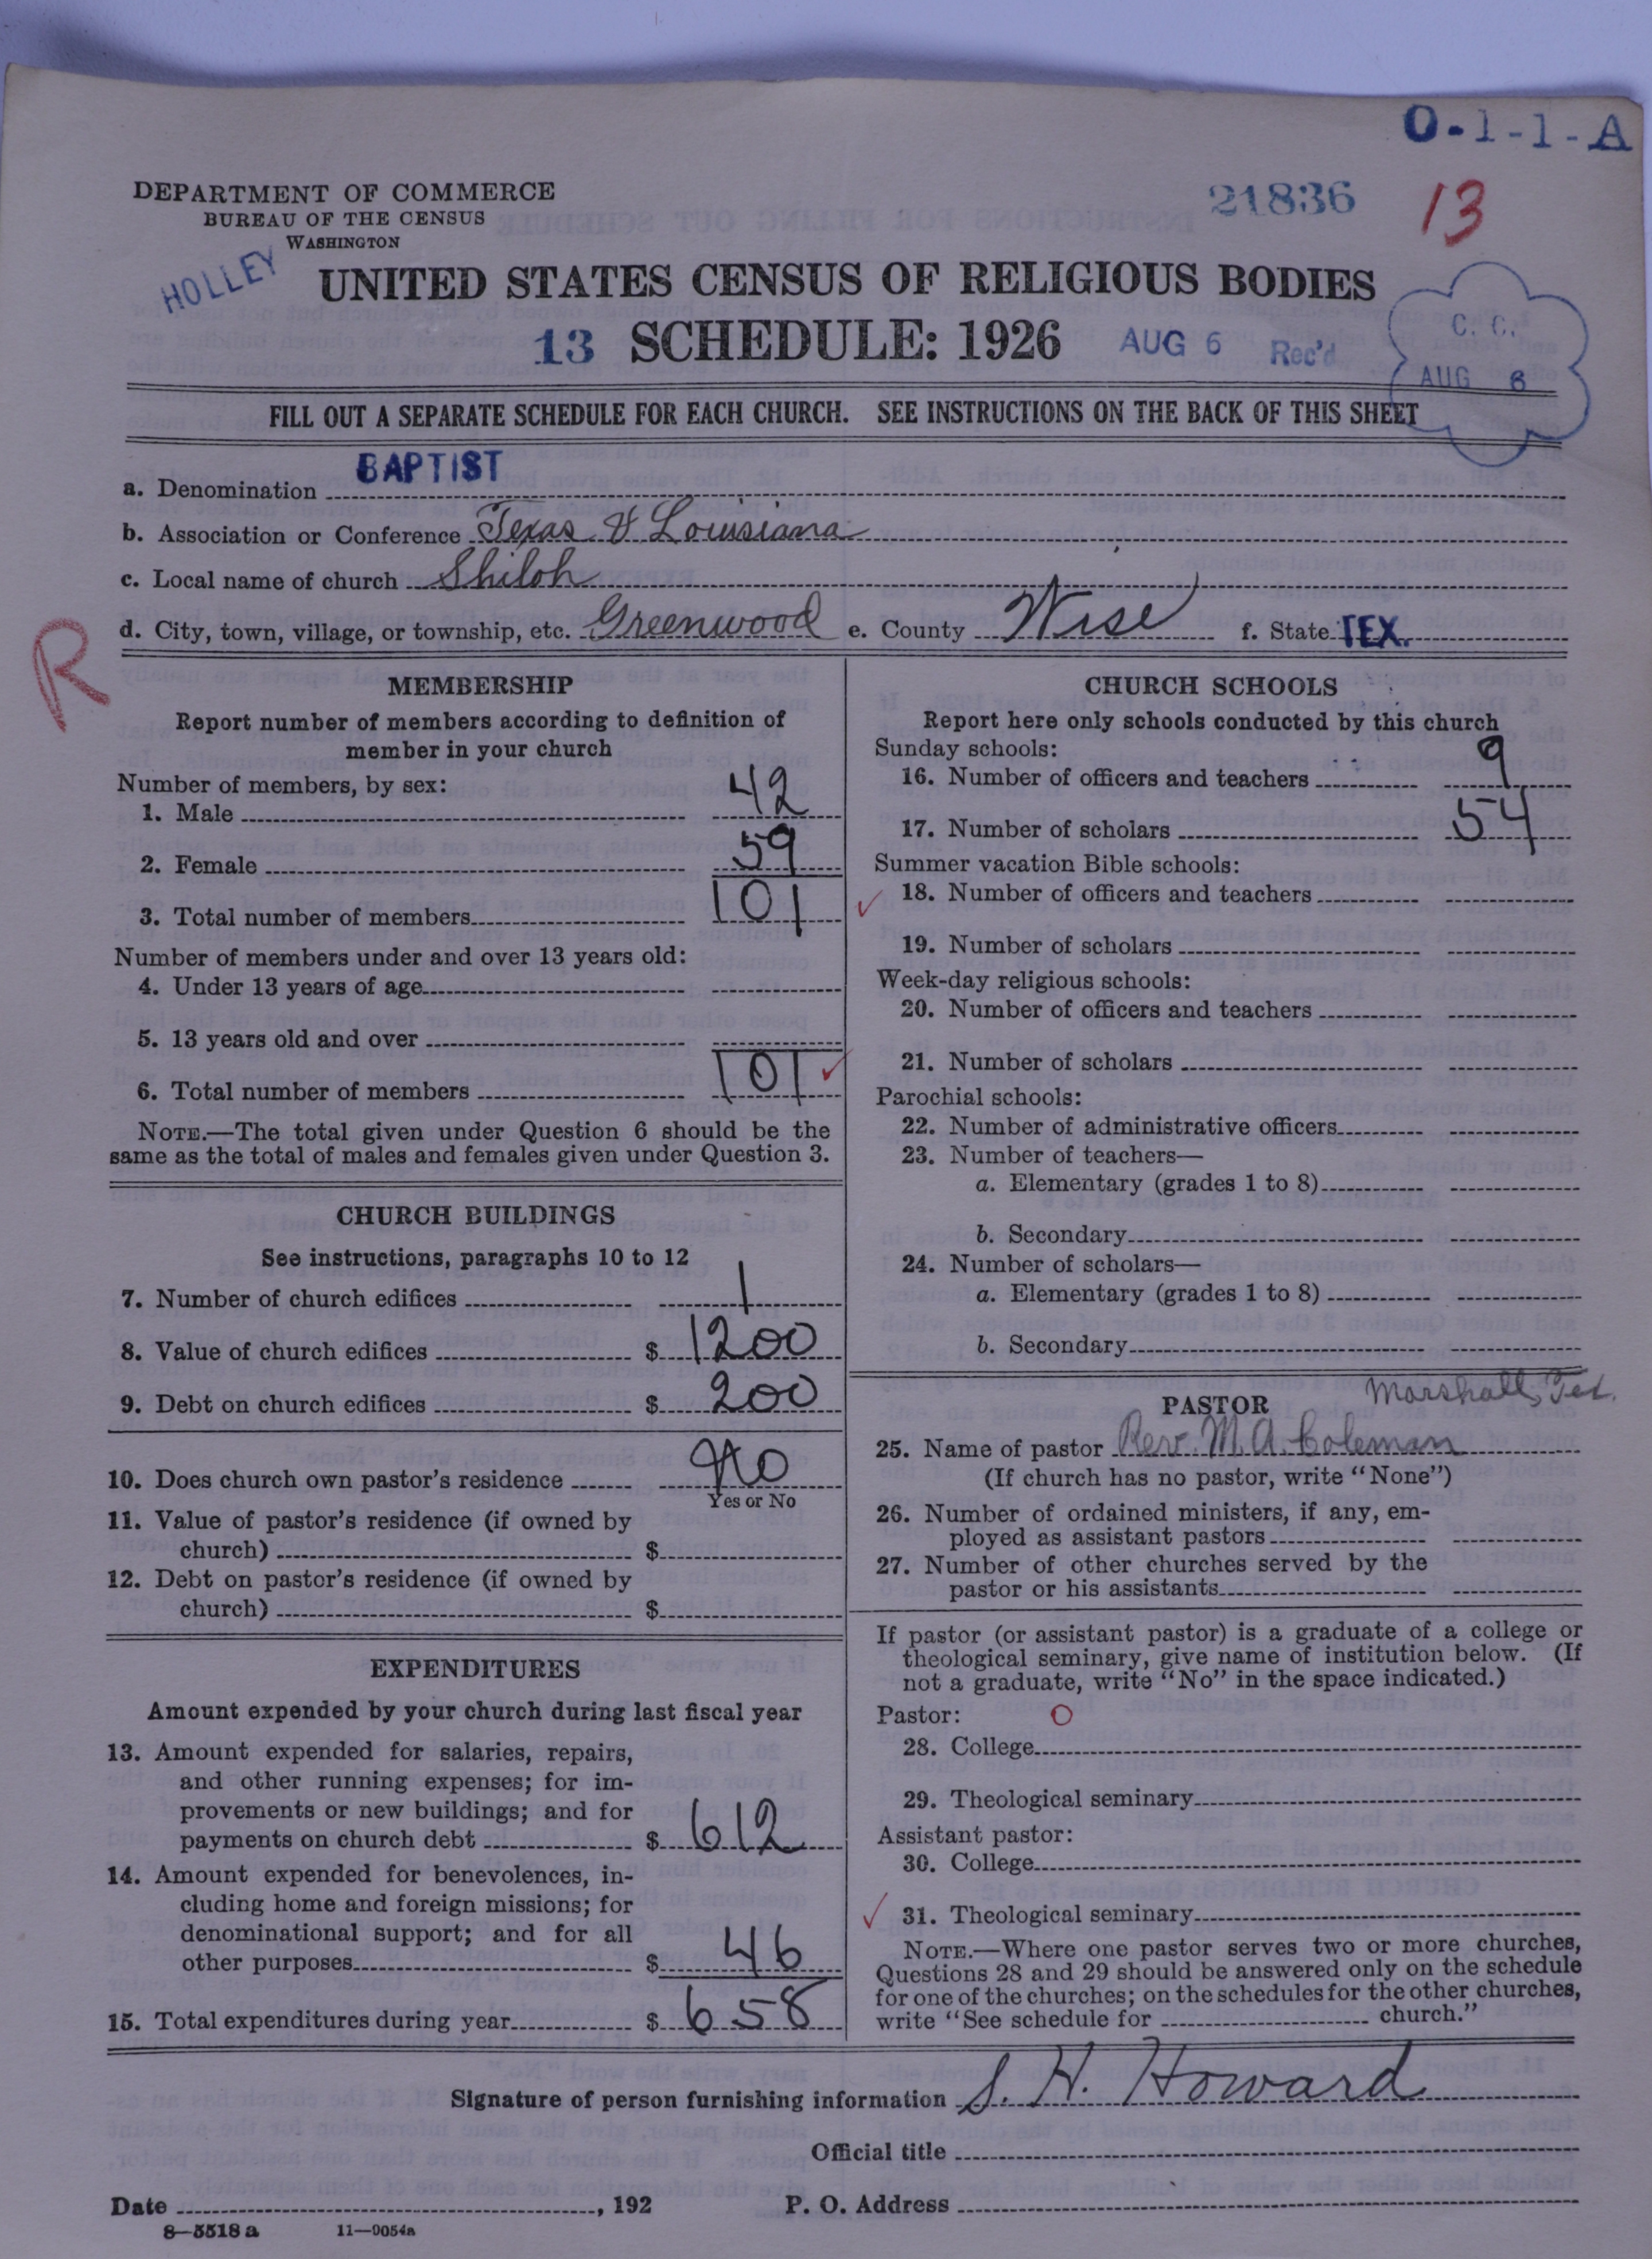 O-1-1-A
DEPARTMENT OF COMMERCE
BUREAU OF THE CENSUS
WASHINGTON
21836
13
HOLLEY
UNITED STATES CENSUS OF RELIGIOUS BODIES
13 SCHEDULE: 1926 AUG 6 Rec'd
C. C.
AUG 6
FILL OUT A SEPARATE SCHEDULE FOR EACH CHURCH. SEE INSTRUCTIONS ON THE BACK OF THIS SHEET
a. Denomination BAPTIST
b. Association or Conference Texas & Louisiana
c. Local name of church Shiloh
d. City, town, village, or township, etc. Greenwood e. County Wise f. State TEX.
R
MEMBERSHIP
Report number of members according to definition of
member in your church
Number of members, by sex:
1. Male 42
2. Female 59
3. Total number of members 101
Number of members under and over 13 years old:
4. Under 13 years of age
5. 13 years old and over
6. Total number of members 101
NOTE.—The total given under Question 6 should be the
same as the total of males and females given under Question 3.
CHURCH BUILDINGS
See instructions, paragraphs 10 to 12
7. Number of church edifices 1
8. Value of church edifices $ 1200
9. Debt on church edifices $ 200
10. Does church own pastor's residence No
Yes or No
11. Value of pastor's residence (if owned by
church) $
12. Debt on pastor's residence (if owned by
church) $
EXPENDITURES
Amount expended by your church during last fiscal year
13. Amount expended for salaries, repairs,
and other running expenses; for im-
provements or new buildings; and for
payments on church debt $ 612
14. Amount expended for benevolences, in-
cluding home and foreign missions; for
denominational support; and for all
other purposes $ 46
15. Total expenditures during year $ 658
CHURCH SCHOOLS
Report here only schools conducted by this church
Sunday schools:
16. Number of officers and teachers 9
17. Number of scholars 54
Summer vacation Bible schools:
18. Number of officers and teachers
19. Number of scholars
Week-day religious schools:
20. Number of officers and teachers
21. Number of scholars
Parochial schools:
22. Number of administrative officers
23. Number of teachers—
a. Elementary (grades 1 to 8)
b. Secondary
24. Number of scholars—
a. Elementary (grades 1 to 8)
b. Secondary
PASTOR Marshall, Tex.
25. Name of pastor Rev. M. A. Coleman
(If church has no pastor, write "None")
26. Number of ordained ministers, if any, em-
ployed as assistant pastors
27. Number of other churches served by the
pastor or his assistants
If pastor (or assistant pastor) is a graduate of a college or
theological seminary, give name of institution below. (If
not a graduate, write "No" in the space indicated.)
Pastor: O
28. College
29. Theological seminary
Assistant pastor:
30. College
31. Theological seminary
NOTE.—Where one pastor serves two or more churches,
Questions 28 and 29 should be answered only on the schedule
for one of the churches; on the schedules for the other churches,
write "See schedule for church."
Signature of person furnishing information S. H. Howard
Official title
Date , 192 P. O. Address
8—5518 a 11—9054a